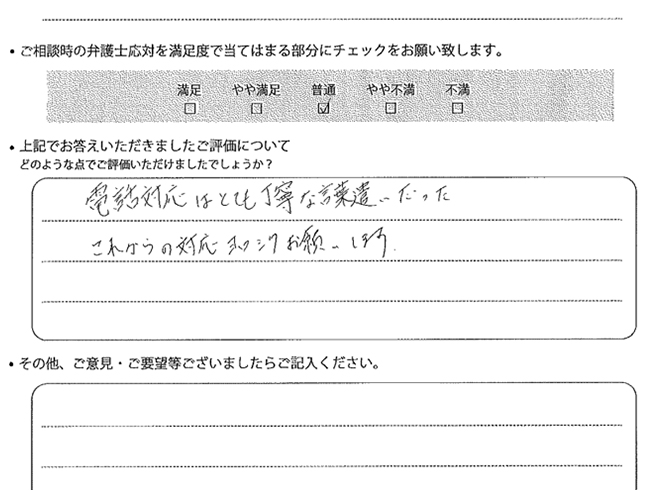 ・ご相談時の弁護士応対を満足度で当てはまる部分にチェックをお願い致します。
満足 やや満足 普通 やや不満 不満
□ □ ☑ □ □
・上記でお答えいただきましたご評価について
どのような点でご評価いただけましたでしょうか？
電話対応はとても丁寧な言葉遣いだった
これからの対応ヨロシクお願いします.
・その他、ご意見・ご要望等ございましたらご記入ください。